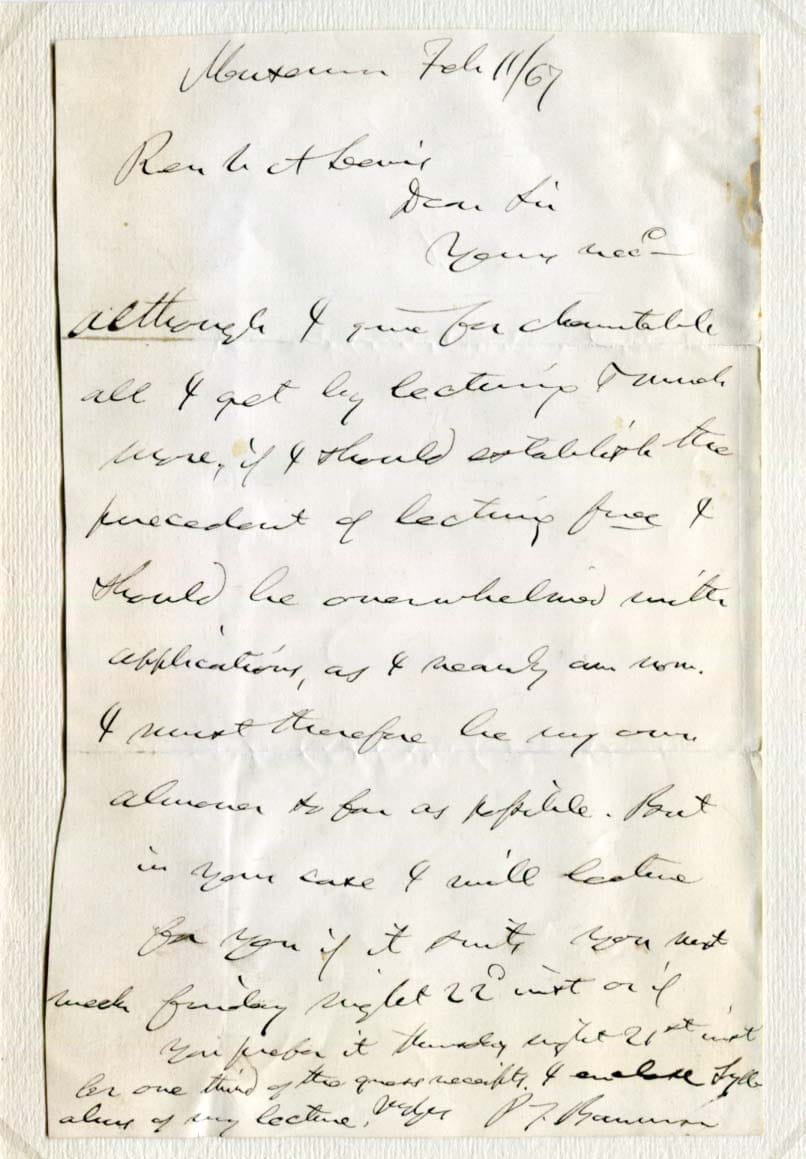 Museum Feb 11/67
Rev W A Lewis
Dear Sir
Yours rec^d —
although I give for charitable
all I get by lecturing & much
more, if I should establish the
precedent of lecturing free I
should be overwhelmed with
applications, as I nearly am now.
I must therefore be my own
almoner so far as possible. But
in your case I will lecture
for you if it suits you next
week friday night 22^d inst or if
you prefer it thursday night 21^st inst
for one third of the gross receipts. I enclose Syll-
abus of my lecture. P. T. Barnum